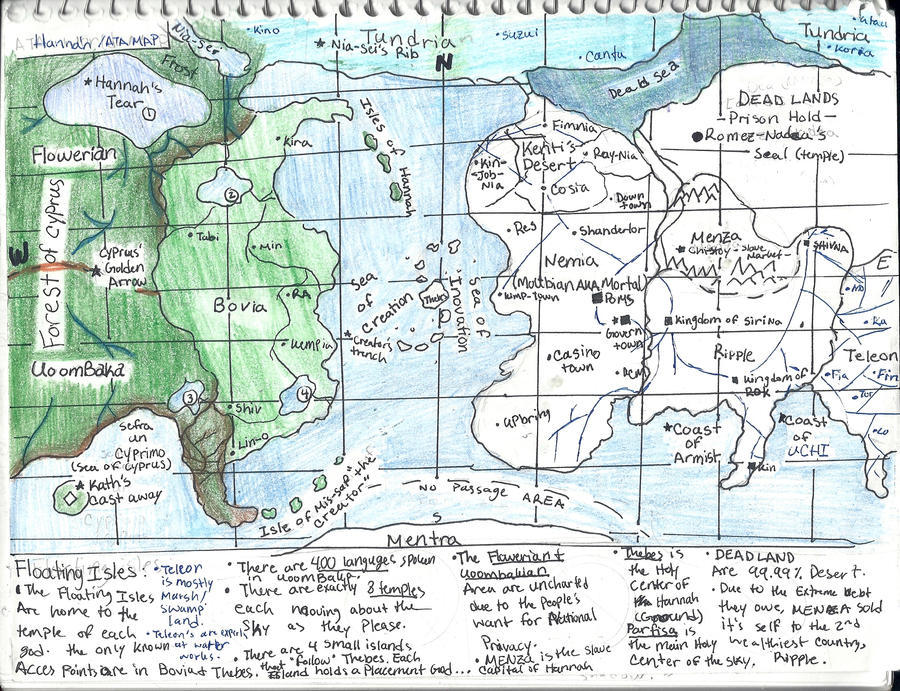 Hannah/ATA MAP
Nia-Sei
Frost
Kino
★Nia-sei's Rib
Tundria
N
Suzui
Cantu
Dead Sea
Tundria
Atau
Koria
★Hannah's
Tear
①
Flowerian
Forest of Cyprus
W
Cyprus'
★Golden
Arrow
UoomBaka
Kira
②
Tabi
Min
Bovia
RA
Uumpia
③
④
Shiv
Lin-O
Isles of Hannah
Sea
of
Creation
★Creator's
trench
Thebes
Sea of
Inovation
sefra
un
Cyprimo
(sea of cyprus)
★Kath's
Cast away
Isle of Mis-sap "the
Creator"
NO Passage AREA
S
Mentra
Fimnia
Kenti's
Desert
Kin-
Job-
Nia
Ray-Nia
Cosia
Down
town
Res
Shanderlor
Nemia
(Moltbian AKA Mortal)
Wmp-town
Poms
Govern
town
Casino
town
Acm
Upbring
DEAD LANDS
Prison Hold
Romez-Nadea's
Seal (temple)
Menza
Chistoy-Slave
Market-
SHIVNA
Kingdom of Sirina
Ripple
Kingdom of
ROK
★Coast
of
Armist
★Coast
of
UCHI
Kin
E
Ka
Teleon
Fia
Fin
Tor
Lo
Floating Isles:
• The Floating Isles
Are home to the
temple of each
god. the only known
Acces Points are in Bovia & Thebes.
• Teleon
is mostly
Marsh/
swamp
land.
• Teleon's are experts
at water
works.
• There are 400 languges spoken
in uoomBaka.
• There are exactly 8 temples
each moving about the
sky as they Please.
• There are 4 small islands
that "follow" Thebes. Each
island holds a Placement God...
• The Flowerian &
Uoombakian
Area are uncharted
due to the People's
want for National
Privacy.
• MENZA is the slave
capital of Hannah
• Thebes is
the Holy
center of
Hannah
(Ground)
Parfisa is
the main Holy
Center of the sky.
• DEADLAND
Are 99.99% Desert.
• Due to the Extreme debt
they owe, MENZA sold
it's self to the 2nd
wealthiest country,
Ripple.